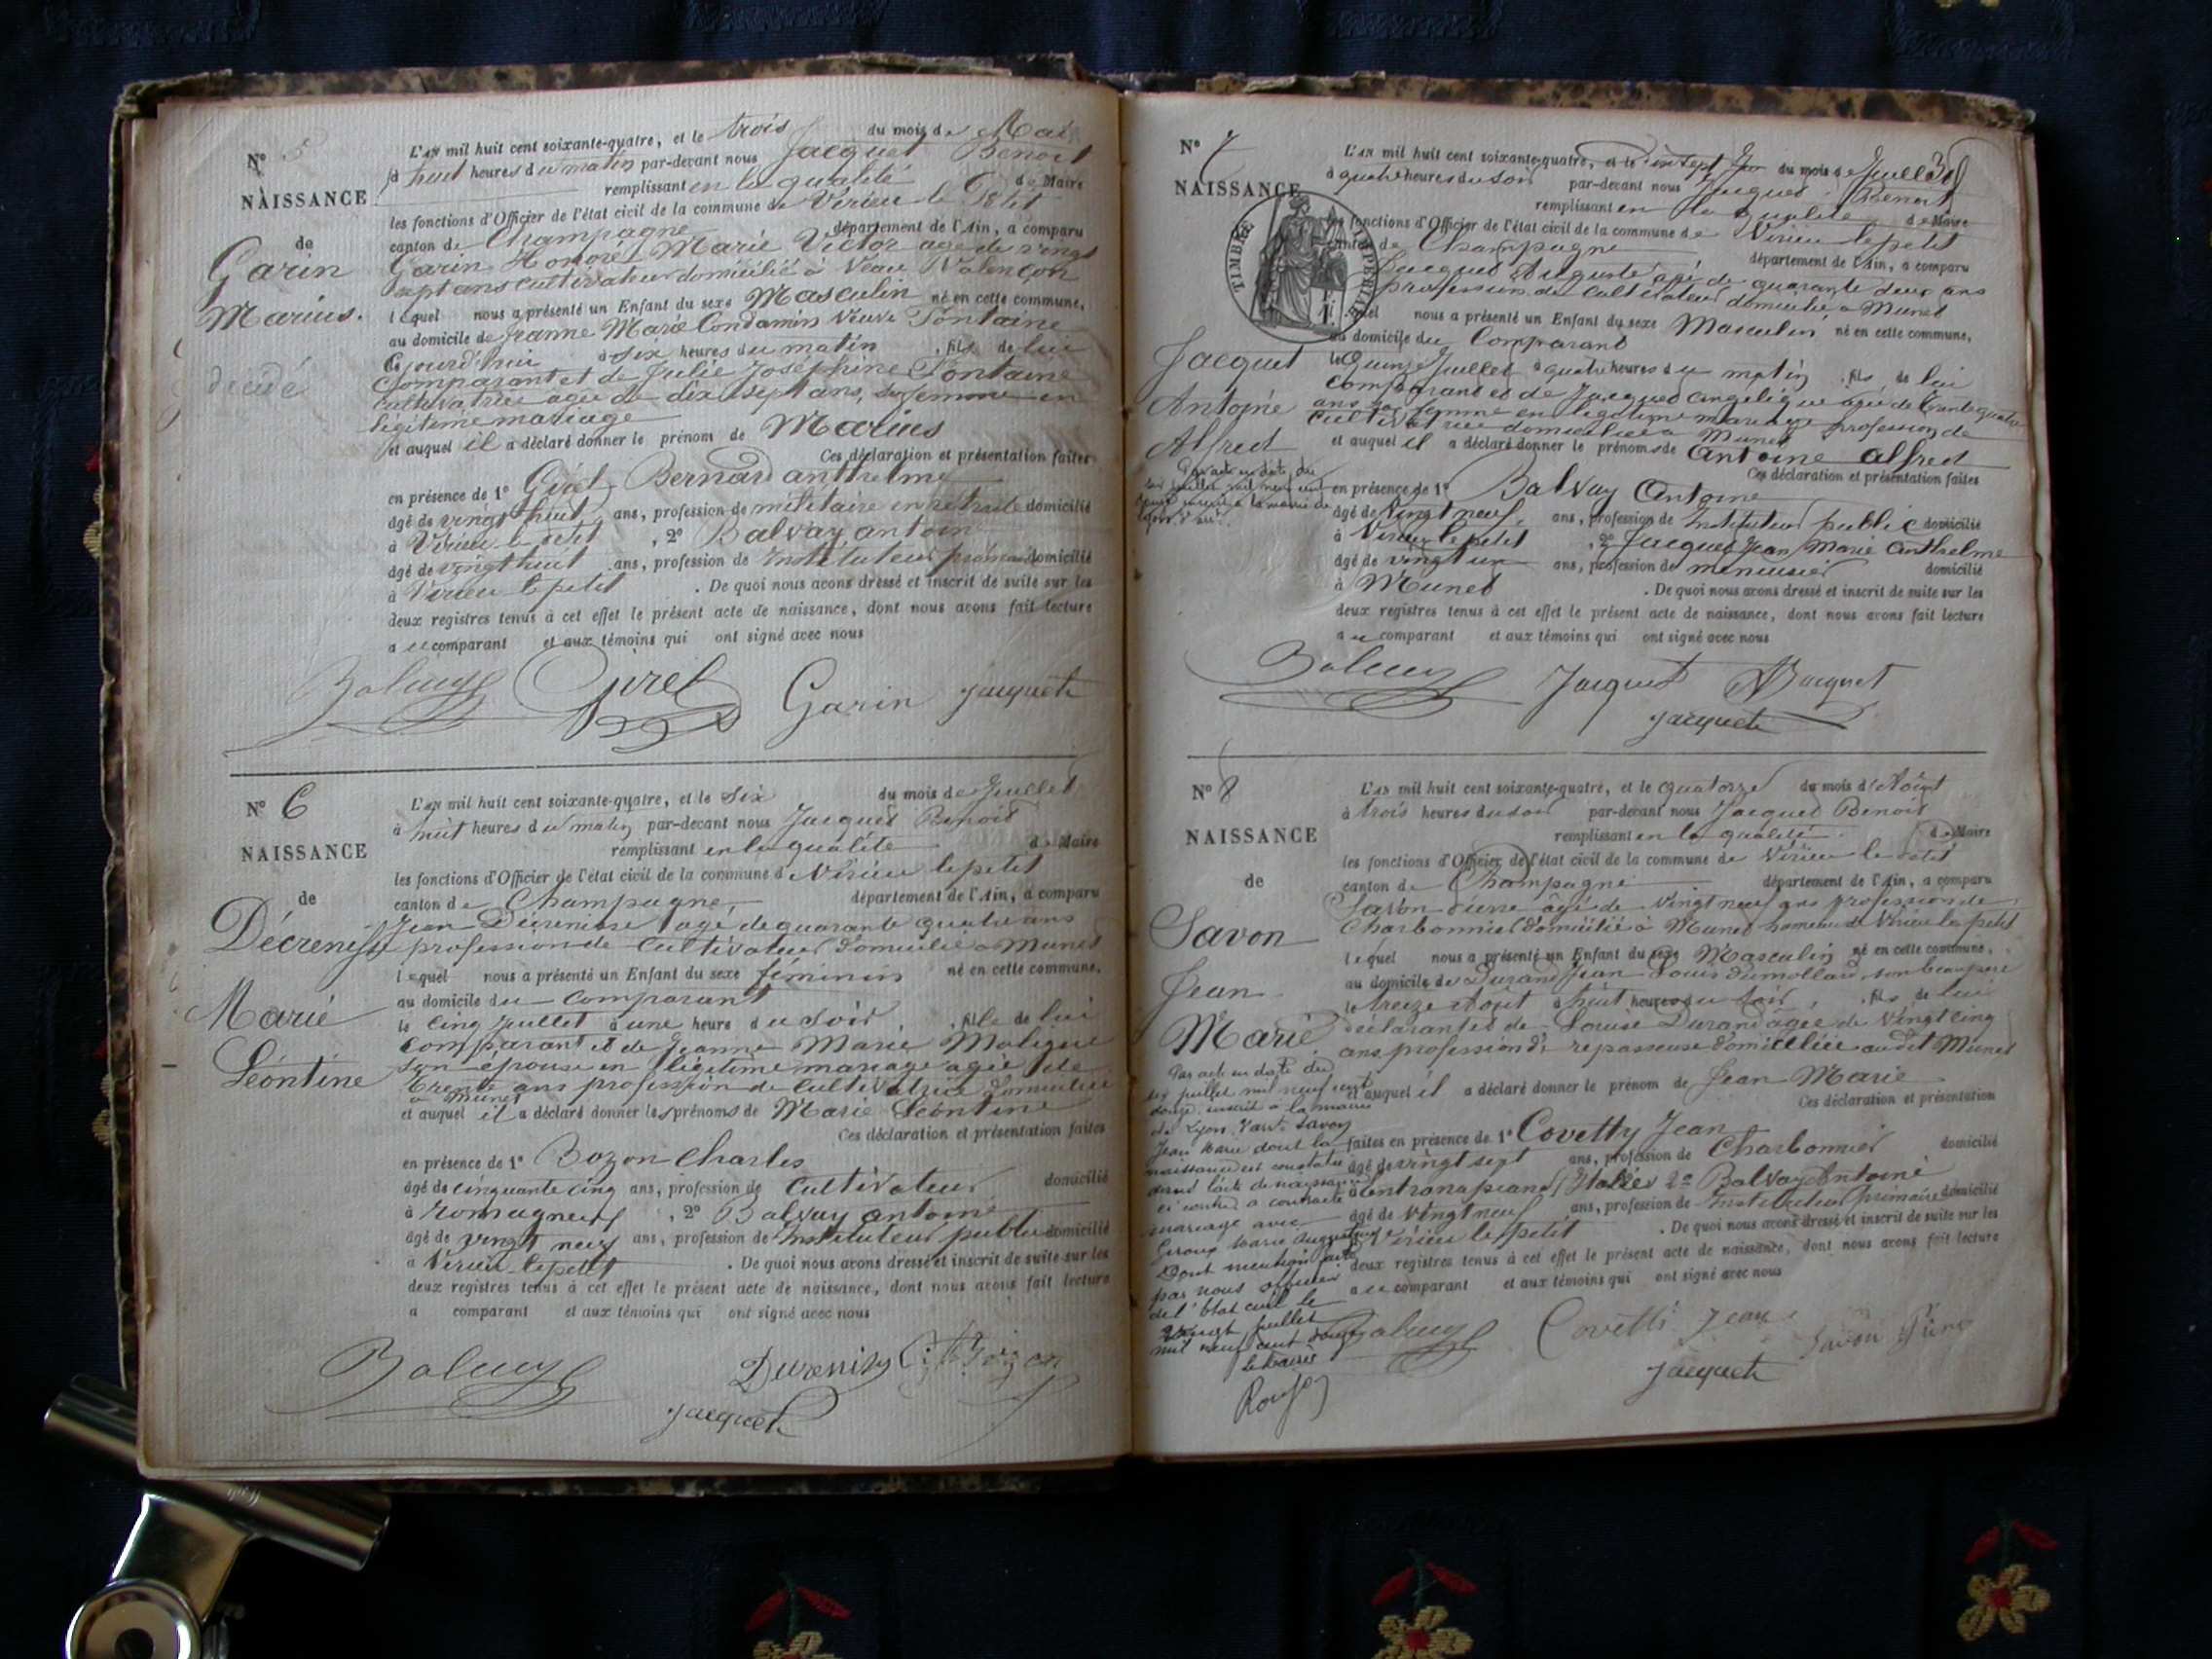 N° 5
NAISSANCE
de
Garin
Marius.
décédé
L'AN mil huit cent soixante-quatre, et le trois du mois de Mai
à huit heures du matin par-devant nous Jacquet Benoit
remplissant en la qualité de Maire
les fonctions d'Officier de l'état civil de la commune de Virieu le Petit
canton de Champagne département de l'Ain, a comparu
Garin Honoré Marie Victor agé de vingt
sept ans cultivateur domicilié à
lequel nous a présenté un Enfant du sexe Masculin né en cette commune,
au domicile de Jeanne Marie Condamin veuve Fontaine
à six heures du matin, fils de lui
Comparant et de Julie Joséphine Fontaine
cultivatrice agée de dix sept ans, sa femme en
légitime mariage
et auquel il a déclaré donner le prénom de Marius
Ces déclaration et présentation faites
en présence de 1° Girel Bernard anthelme
âgé de vingt huit ans, profession de militaire en retraite domicilié
à Virieu le petit, 2° Balvay antoine
âgé de vingt huit ans, profession de Instituteur primaire domicilié
à Virieu le petit. De quoi nous avons dressé et inscrit de suite sur les
deux registres tenus à cet effet le présent acte de naissance, dont nous avons fait lecture
au comparant et aux témoins qui ont signé avec nous
Balvay Girel Garin jacquet
N° 6
NAISSANCE
de
Décrenisse
Marie
Léontine
L'AN mil huit cent soixante-quatre, et le six du mois de Juillet
à huit heures du matin par-devant nous Jacquet Benoit
remplissant en la qualité de Maire
les fonctions d'Officier de l'état civil de la commune de Virieu le petit
canton de Champagne département de l'Ain, a comparu
Jean Décrenisse agé de quarante quatre ans
profession de Cultivateur domicilié à Munet
lequel nous a présenté un Enfant du sexe féminin né en cette commune,
au domicile du comparant
le cinq juillet à une heure du soir, fille de lui
comparant et de Jeanne Marie
son épouse en légitime mariage agée de
trente ans profession de Cultivatrice domiciliée
à Munet
et auquel il a déclaré donner les prénoms de Marie Léontine
Ces déclaration et présentation faites
en présence de 1° Bozon Charles
âgé de cinquante cinq ans, profession de Cultivateur domicilié
à Romagneux, 2° Balvay antoine
âgé de vingt neuf ans, profession de Instituteur public domicilié
à Virieu le petit. De quoi nous avons dressé et inscrit de suite sur les
deux registres tenus à cet effet le présent acte de naissance, dont nous avons fait lecture
a comparant et aux témoins qui ont signé avec nous
Balvay Bozon
jacquet
N° 7
NAISSANCE
TIMBRE IMPERIAL
Jacquet
Antoine
Alfred
L'AN mil huit cent soixante-quatre, et le dix sept du mois de Juillet
à quatre heures du soir par-devant nous Jacquet Benoit
remplissant en la qualité de Maire
les fonctions d'Officier de l'état civil de la commune de Virieu le petit
canton de Champagne département de l'Ain, a comparu
Jacquet Auguste agé de quarante deux ans
profession de cultivateur domicilié à Munet
lequel nous a présenté un Enfant du sexe Masculin né en cette commune,
au domicile du Comparant
le Quinze Juillet à quatre heures du matin, fils de lui
comparant et de Jacquet angelique agée de trente quatre
ans sa femme en légitime mariage profession de
cultivatrice domiciliée à Munet
et auquel il a déclaré donner le prénoms de Antoine alfred
Ces déclaration et présentation faites
en présence de 1° Balvay Antoine
âgé de vingt neuf ans, profession de Instituteur public domicilié
à Virieu le petit, 2° Jacquet Jean Marie Anthelme
âgé de vingt un ans, profession de menuisier domicilié
à Munet. De quoi nous avons dressé et inscrit de suite sur les
deux registres tenus à cet effet le présent acte de naissance, dont nous avons fait lecture
au comparant et aux témoins qui ont signé avec nous
Balvay Jacquet Jacquet
jacquet
N° 8
NAISSANCE
de
Savon
Jean
Marie
L'AN mil huit cent soixante-quatre, et le quatorze du mois d'Août
à trois heures du soir par-devant nous Jacquet Benoit
remplissant en la qualité de Maire
les fonctions d'Officier de l'état civil de la commune de Virieu le Petit
canton de Champagne département de l'Ain, a comparu
Savon Pierre âgé de vingt neuf ans profession de
Charbonnier domicilié à Munet hameau de Virieu le petit
lequel nous a présenté un Enfant du sexe Masculin né en cette commune,
au domicile de Durand Jean Louis dumollard, son beau pere
le treize Août à huit heures du soir, fils de lui
déclarant et de Louise Durand âgée de vingt cinq
ans profession de repasseuse domiciliée audit Munet
et auquel il a déclaré donner le prénom de Jean Marie
Ces déclaration et présentation
faites en présence de 1° Covetty Jean
âgé de vingt sept ans, profession de Charbonnier domicilié
à (Italie) 2° Balvay Antoine
âgé de vingt neuf ans, profession de Instituteur primaire domicilié
à Virieu le petit. De quoi nous avons dressé et inscrit de suite sur les
deux registres tenus à cet effet le présent acte de naissance, dont nous avons fait lecture
au comparant et aux témoins qui ont signé avec nous
Par acte en date du
six juillet mil neuf cent
douze inscrit à la mairie
de Lyon, Savon
Jean Marie dont la
naissance est constatée
dans l'acte de naissance
ci contre a contracté
mariage avec
Giroux Marie Augustine
Dont mention faite
par nous officier
de l'état civil le
vingt juillet
mil neuf cent douze
le maire
Balvay Covetti Jean Savon Pierre
jacquet